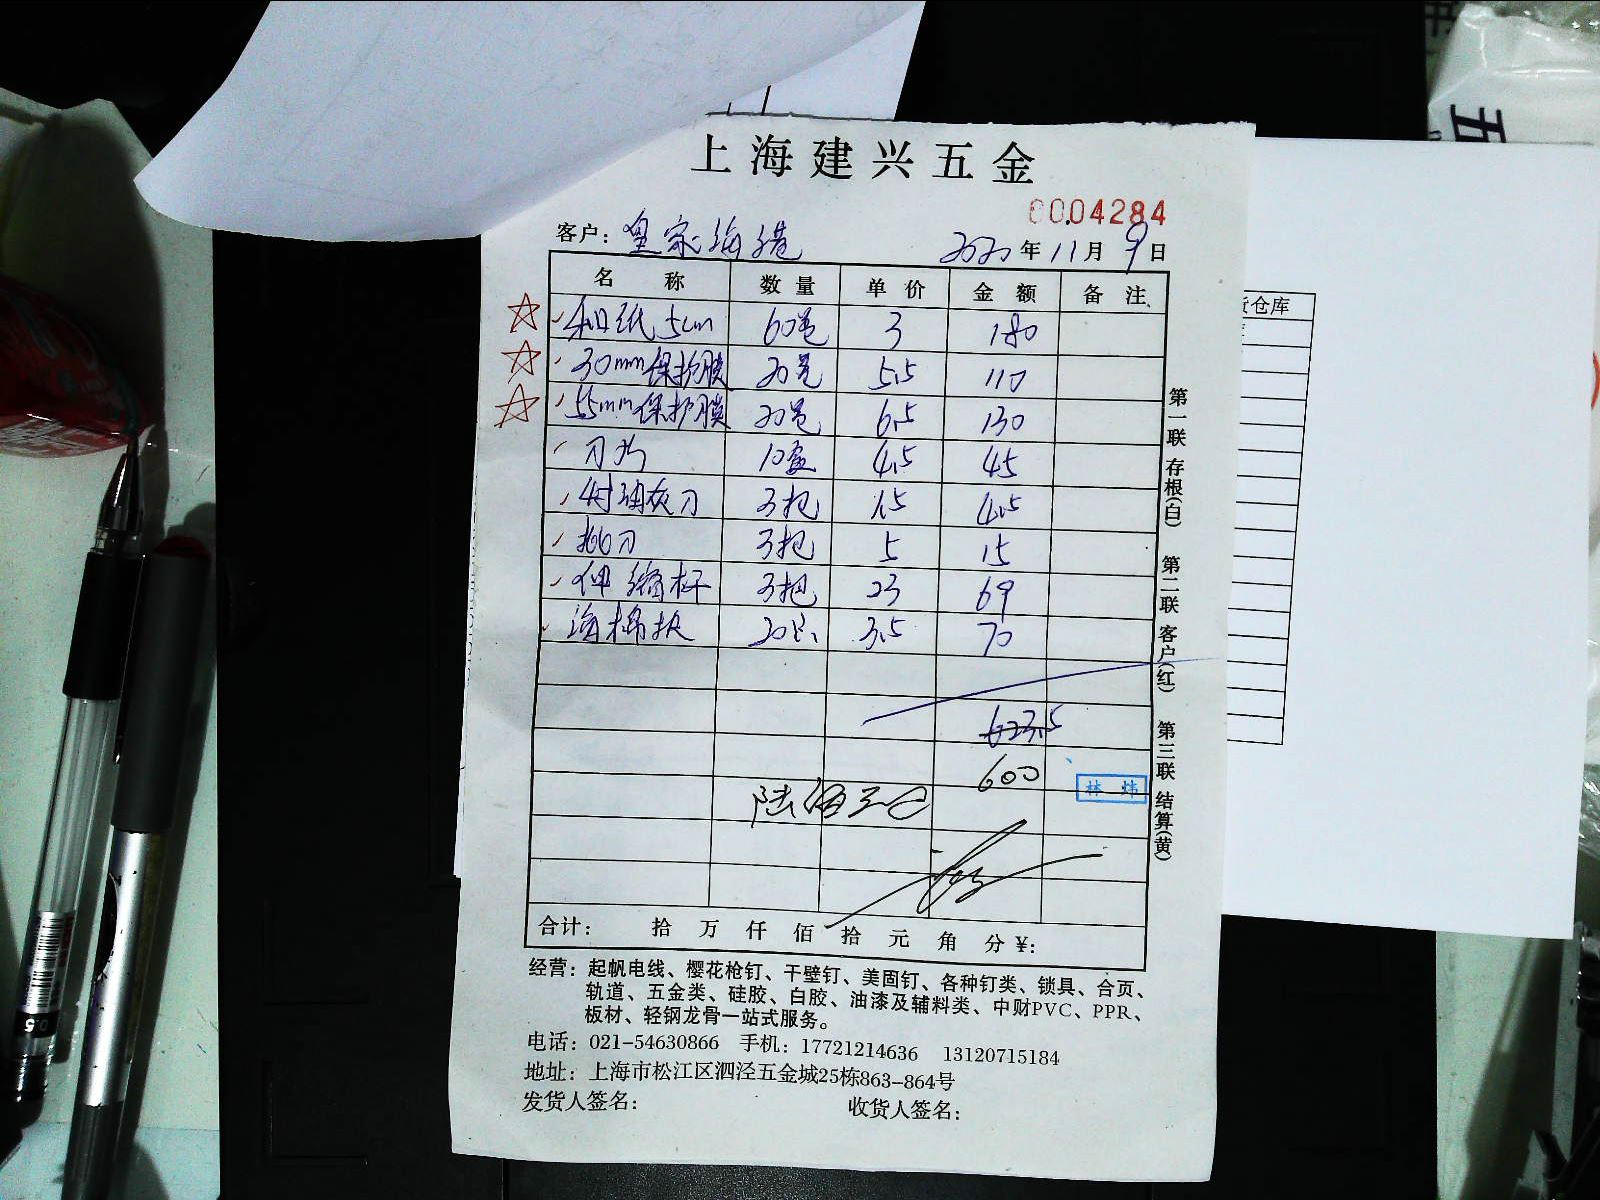 五
上海建兴五金
6004284
客户：皇家海港 2020年11月9日
名称 数量 单价 金额 备注
货仓库
和纸5cm 60卷 3 180
30mm保护膜 20卷 5.5 110
55mm保护膜 20卷 6.5 130
刀片 10盒 4.5 45
4寸油灰刀 3把 1.5 4.5
3把 5 15
伸缩杆 3把 23 69
海棉扒 20只 3.5 70
623.5
600
陆佰元
林 炜
合计： 拾 万 仟 佰 拾 元 角 分 ¥:
第一联 存根(白) 第二联 客户(红) 第三联 结算(黄)
经营：起帆电线、樱花枪钉、干壁钉、美固钉、各种钉类、锁具、合页、
轨道、五金类、硅胶、白胶、油漆及辅料类、中财PVC、PPR、
板材、轻钢龙骨一站式服务。
电话：021-54630866 手机：17721214636 13120715184
地址：上海市松江区泗泾五金城25栋863-864号
发货人签名： 收货人签名：
0.5